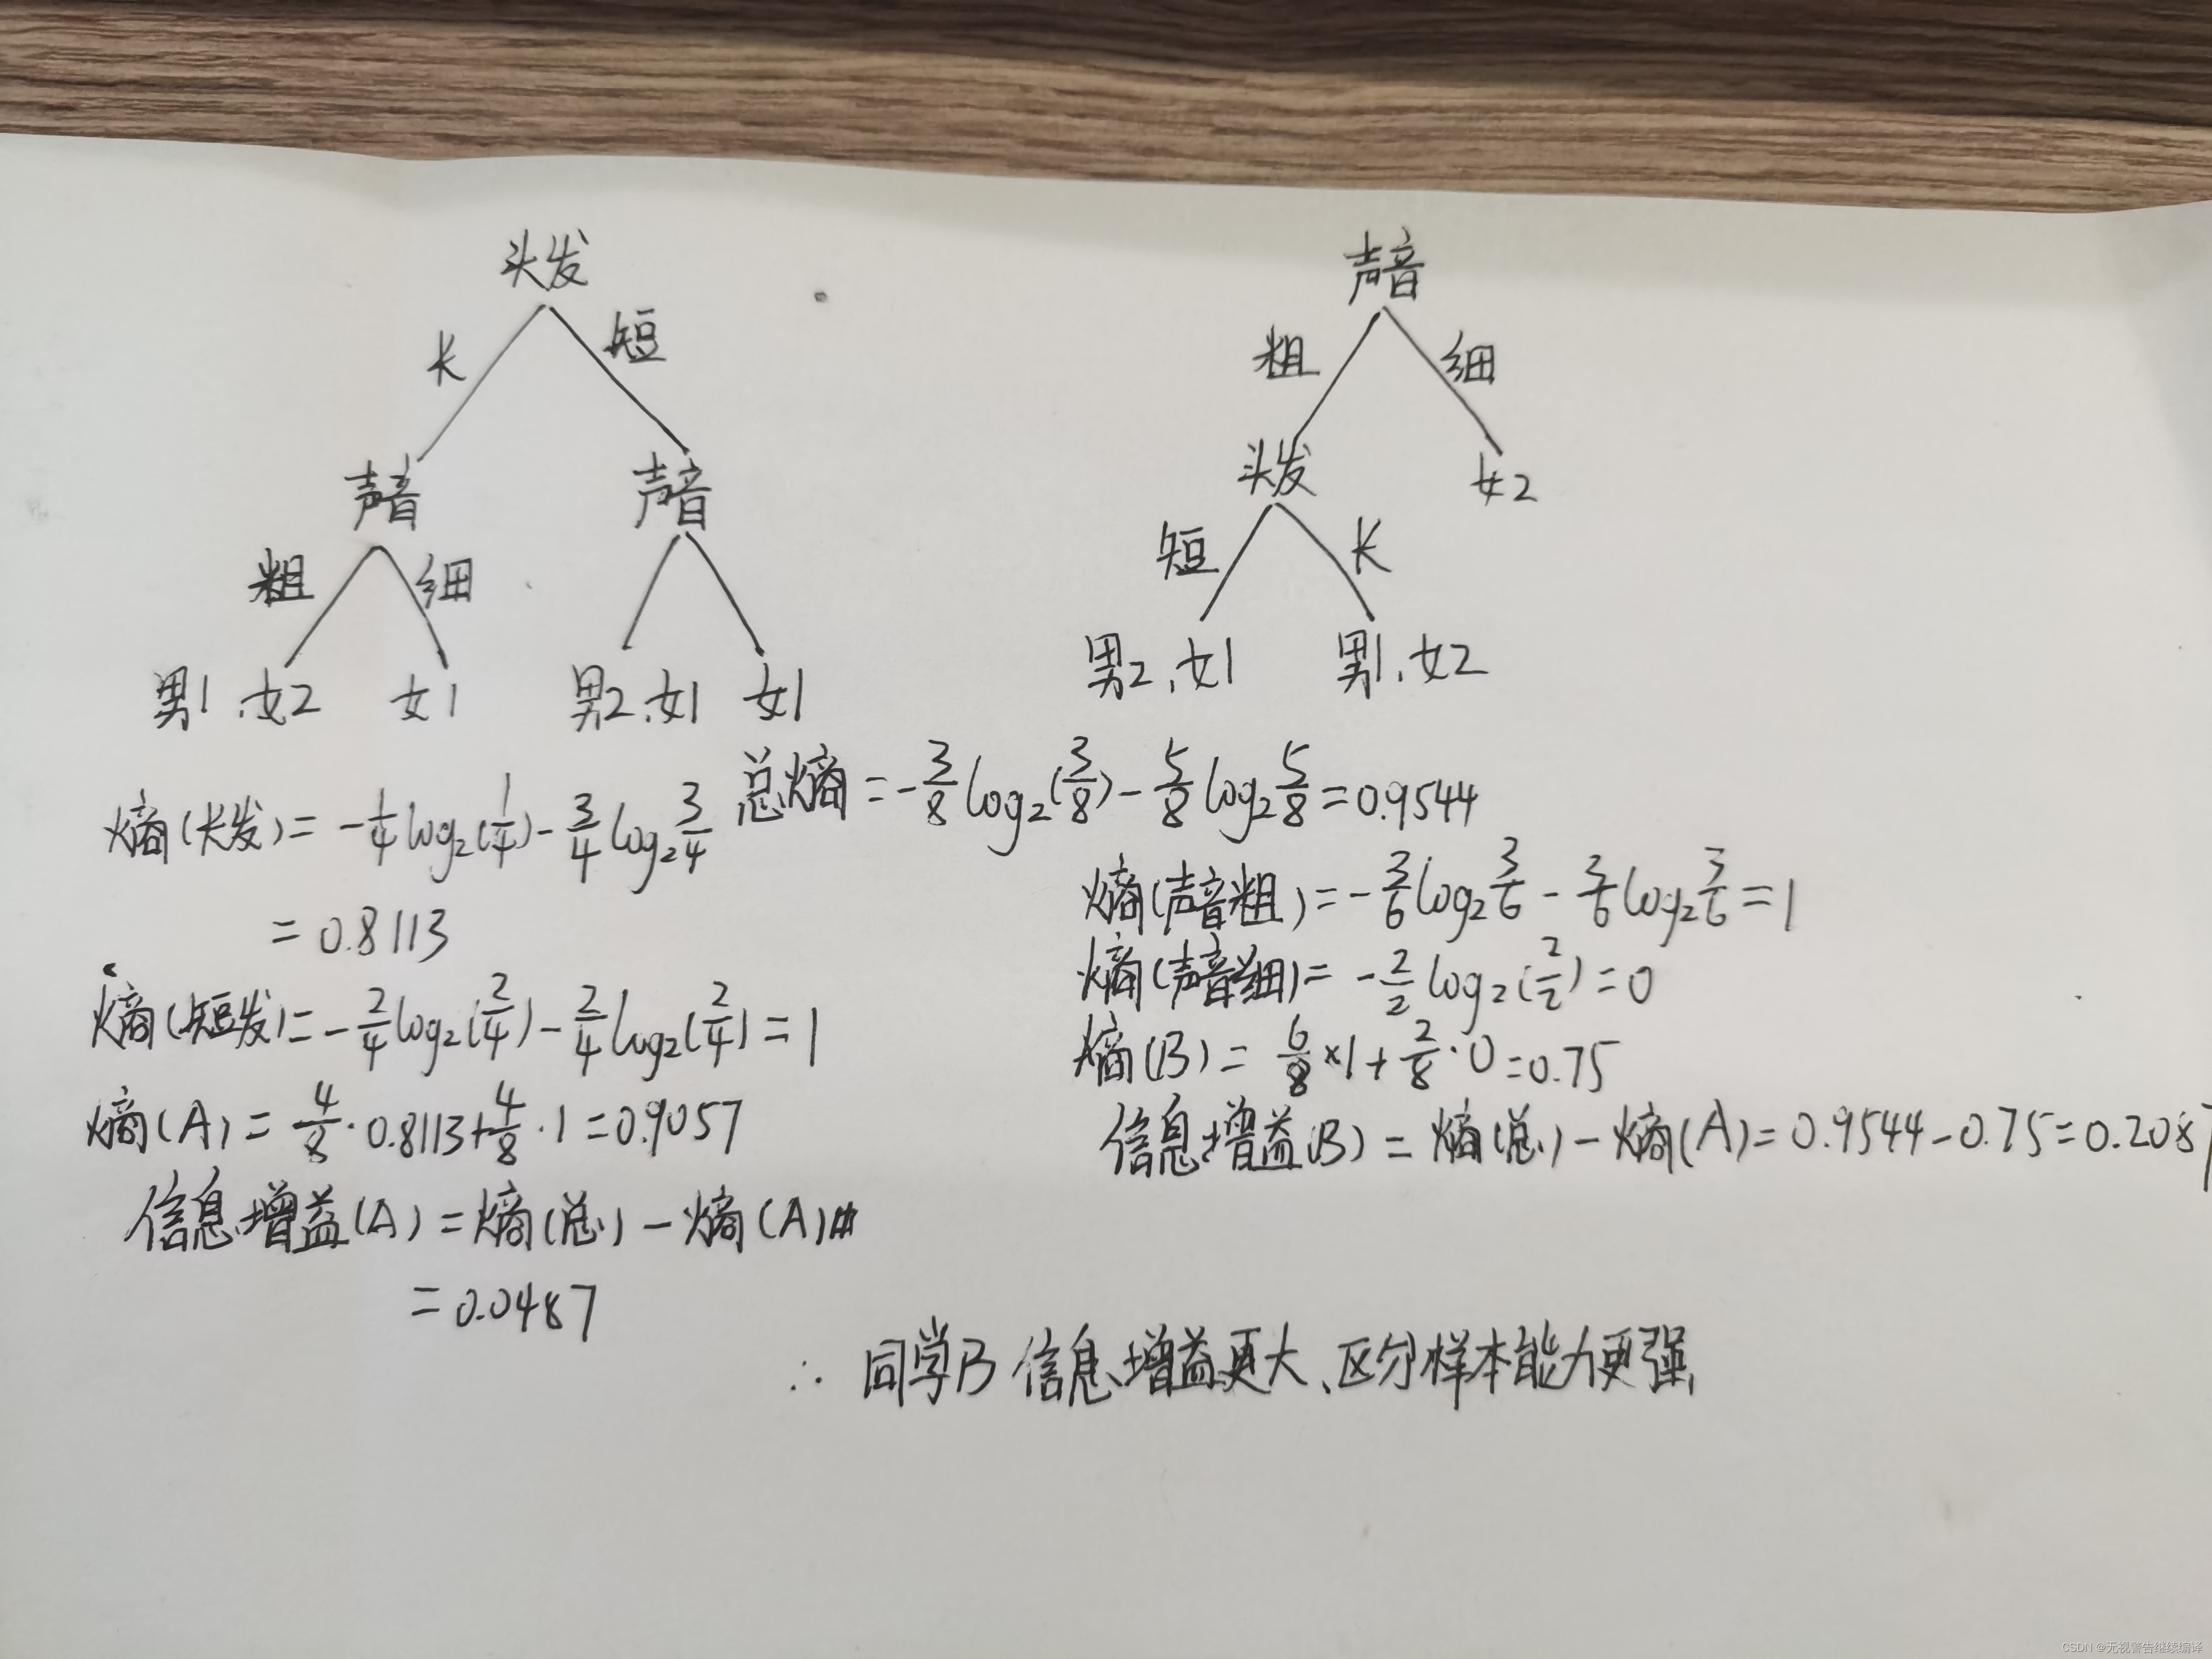 头发
长 短
声音 声音
粗 细
男1、女2 女1 男2、女1 女1
熵(长发)= -1/4 log₂(1/4) - 3/4 log₂ 3/4
= 0.8113
熵(短发)= -2/4 log₂(2/4) - 2/4 log₂(2/4) = 1
熵(A) = 4/8 · 0.8113 + 4/8 · 1 = 0.9057
信息增益(A) = 熵(总) - 熵(A)
= 0.0487
声音
粗 细
头发 女2
短 长
男2、女1 男1、女2
总熵 = -3/8 log₂(3/8) - 5/8 log₂ 5/8 = 0.9544
熵(声音粗) = -3/6 log₂ 3/6 - 3/6 log₂ 3/6 = 1
熵(声音细) = -2/2 log₂(2/2) = 0
熵(B) = 6/8 × 1 + 2/8 · 0 = 0.75
信息增益(B) = 熵(总) - 熵(A) = 0.9544 - 0.75 = 0.2087
∴ 同学B 信息增益更大、区分样本能力更强
CSDN @无视警告继续编译